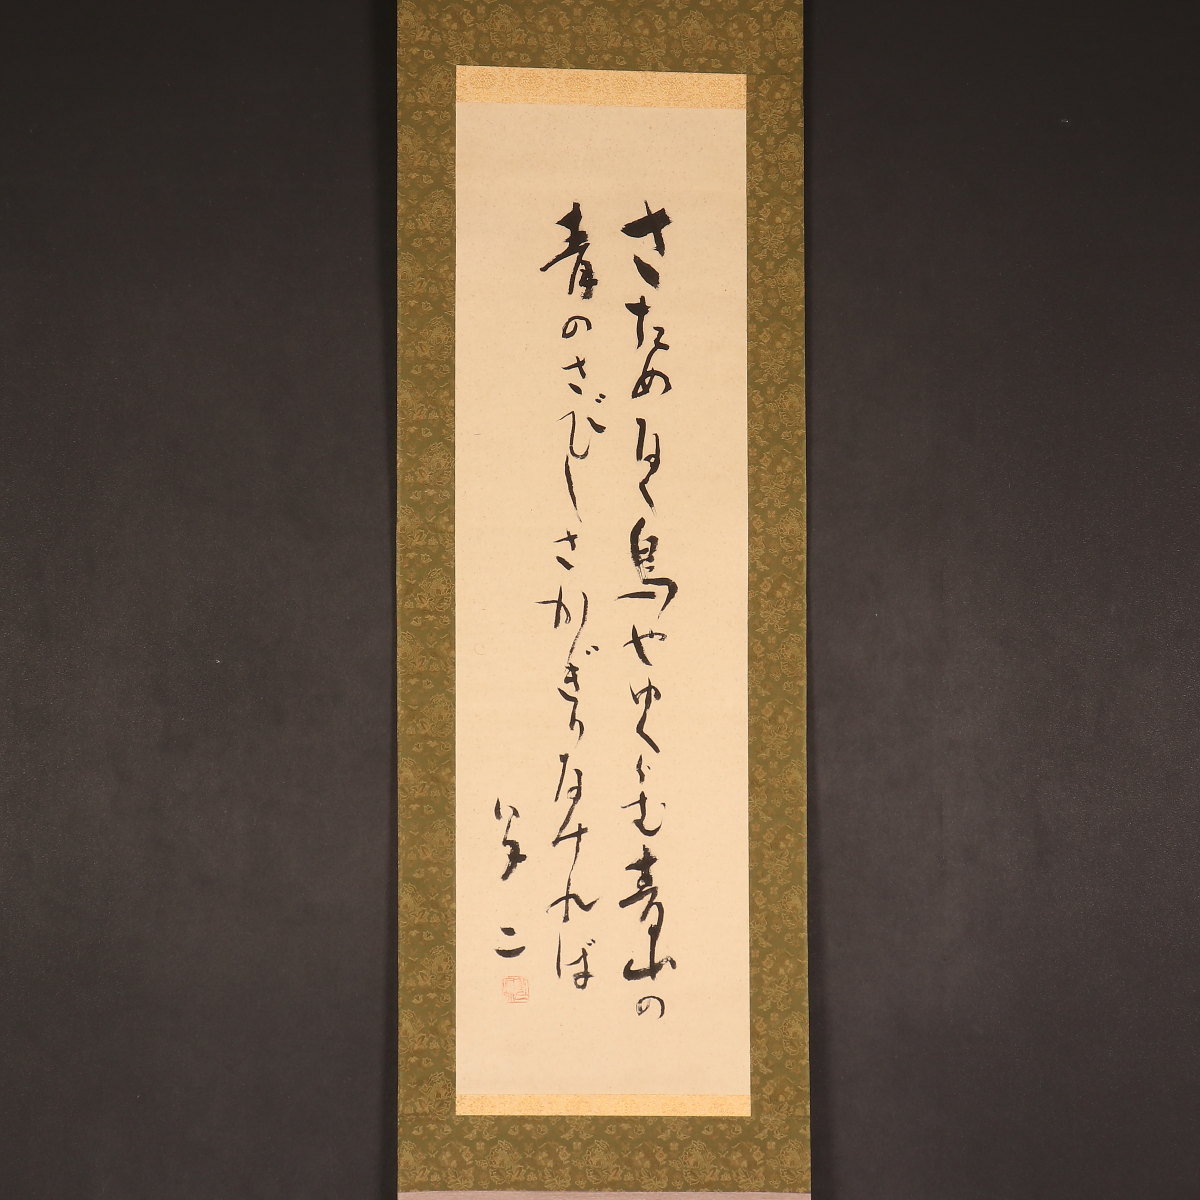 さためなく鳥やゆくらむ青山の
青のさびしさかぎりなければ